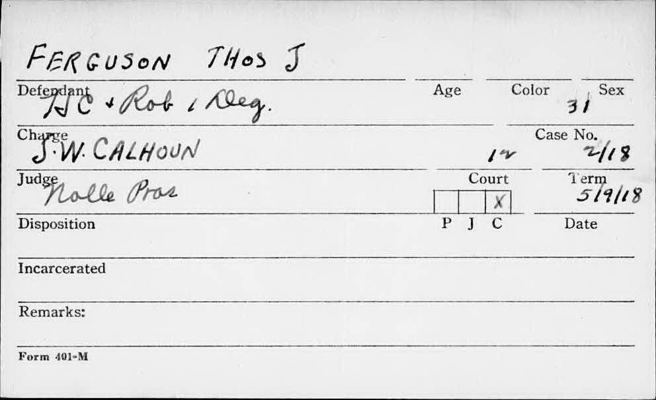 FERGUSON THOS J
Defendant Age Color Sex
HC + Rob 1 Deg. 31
Charge Case No.
J. W. CALHOUN 12 2/18
Judge Court Term
Nolle Pros X 5/9/18
Disposition P J C Date
Incarcerated
Remarks:
Form 401-M